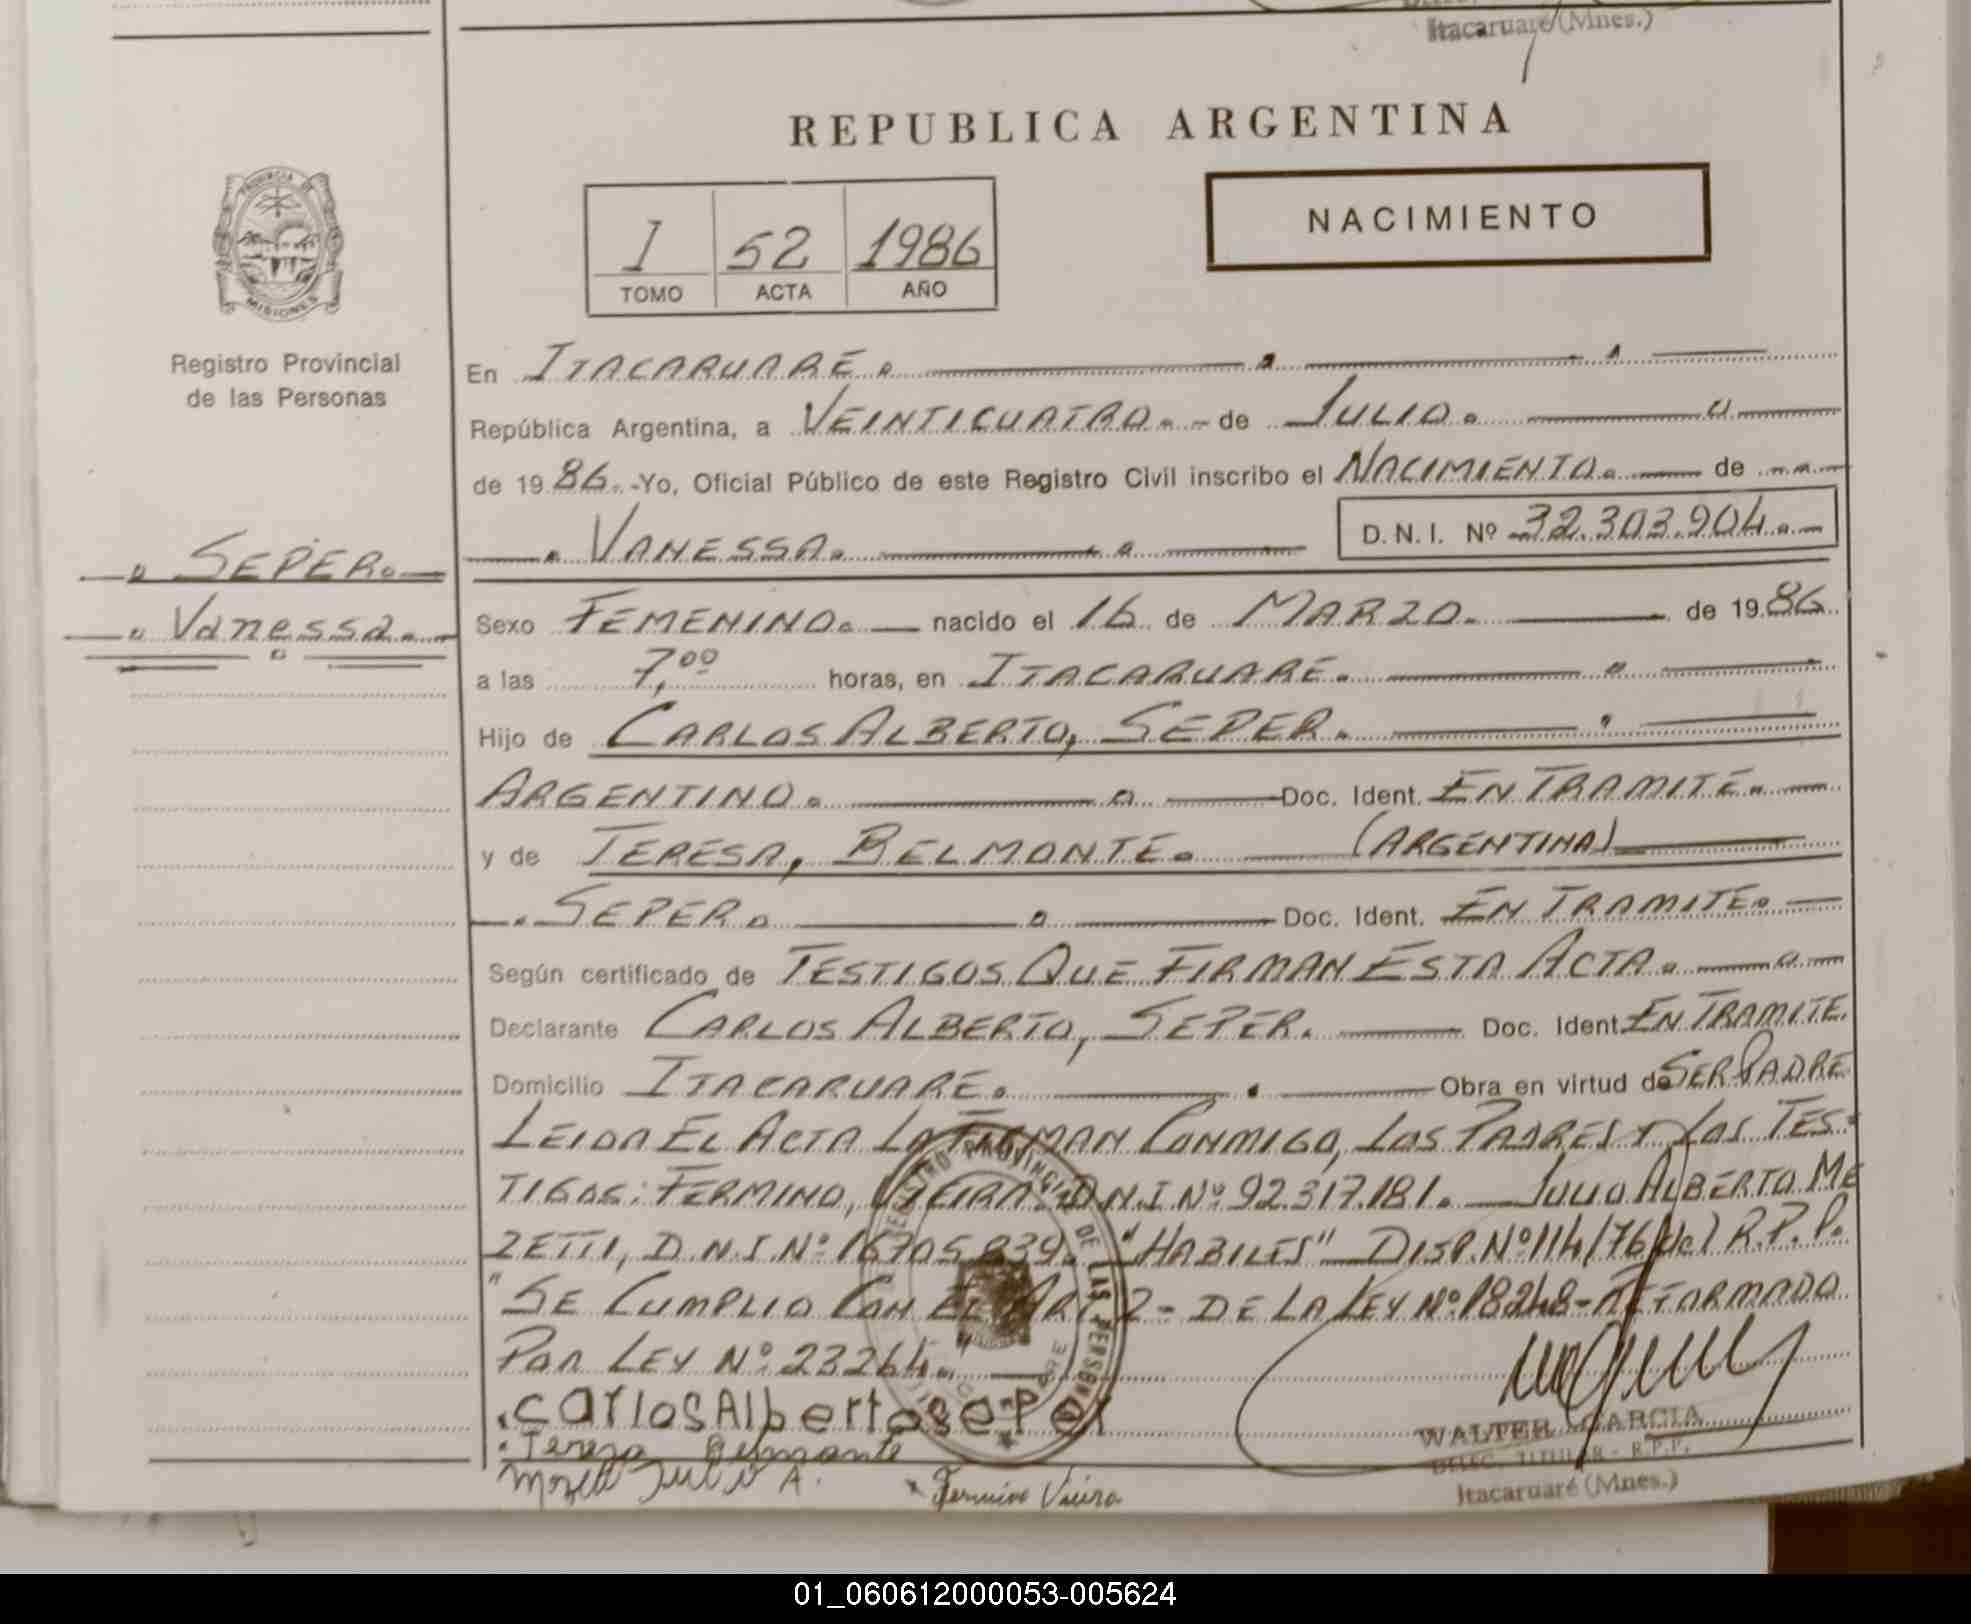 Itacaruaré (Mnes.)
REPUBLICA ARGENTINA
PROVINCIA DE
MISIONES
Registro Provincial
de las Personas
SEPER.
Vanessa.
I 52 1986
TOMO ACTA AÑO
NACIMIENTO
En ITACARUARE.
República Argentina, a VEINTICUATRO. de JULIO.
de 1986. Yo, Oficial Público de este Registro Civil inscribo el NACIMIENTO. de
VANESSA. D.N.I. Nº 32.303.904.
Sexo FEMENINO. nacido el 16 de MARZO. de 1986.
a las 7,00 horas, en ITACARUARE.
Hijo de CARLOS ALBERTO, SEPER.
ARGENTINO. Doc. Ident. EN TRAMITE.
y de TERESA, BELMONTE. (ARGENTINA)
SEPER. Doc. Ident. EN TRAMITE.
Según certificado de TESTIGOS QUE FIRMAN ESTA ACTA.
Declarante CARLOS ALBERTO, SEPER. Doc. Ident. EN TRAMITE.
Domicilio ITACARUARE. Obra en virtud de SER PADRE
LEIDA EL ACTA LA FIRMAN CONMIGO, LOS PADRES Y LOS TES-
TIGOS: FERMINO, VIEIRA. D.N.I Nº 92.317.181. JULIO ALBERTO ME
ZETTI, D.N.I Nº 16705839. "HABILES" DISP. Nº 114/76 del R.P.P.
"SE CUMPLIO CON EL ART 2- DE LA LEY Nº 18248- REFORMADO
POR LEY Nº 23264."
Carlos Alberto seper
Teresa Belmonte
Julio A. Fermino Vieira
REGISTRO PROVINCIAL DE LAS PERSONAS
WALTER GARCIA
DELEG. TITULAR - R.P.P.
Itacaruaré (Mnes.)
01_060612000053-005624